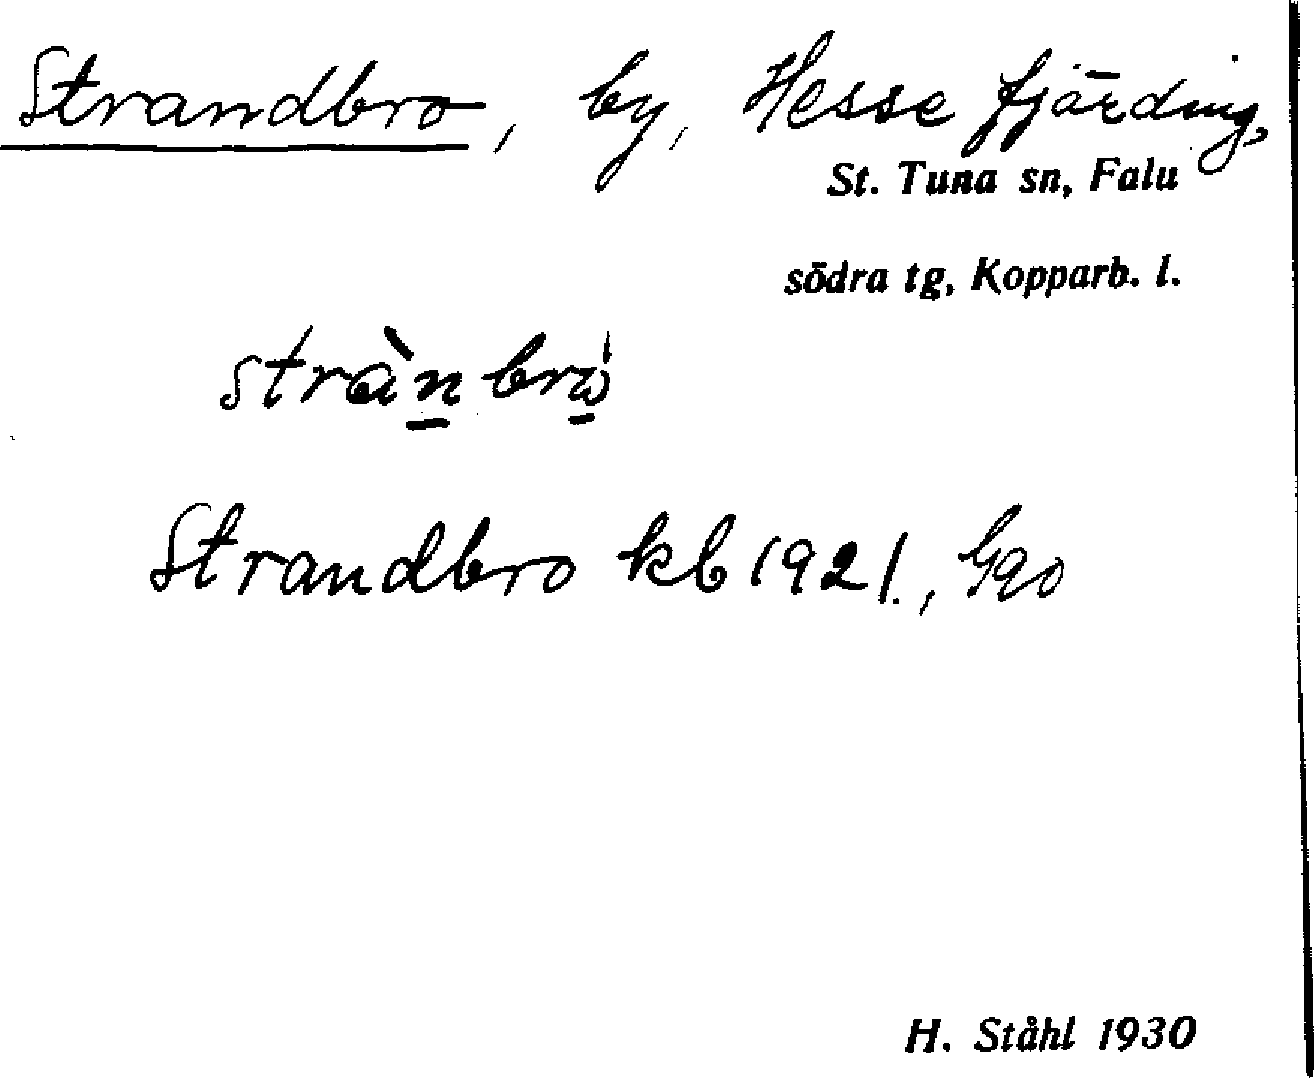 Strandbro, by, Hesse fjärding,
St. Tuna sn, Falu
södra tg, Kopparb. l.
strànbrò
Strandbro kb 1921.,
H. Ståhl 1930